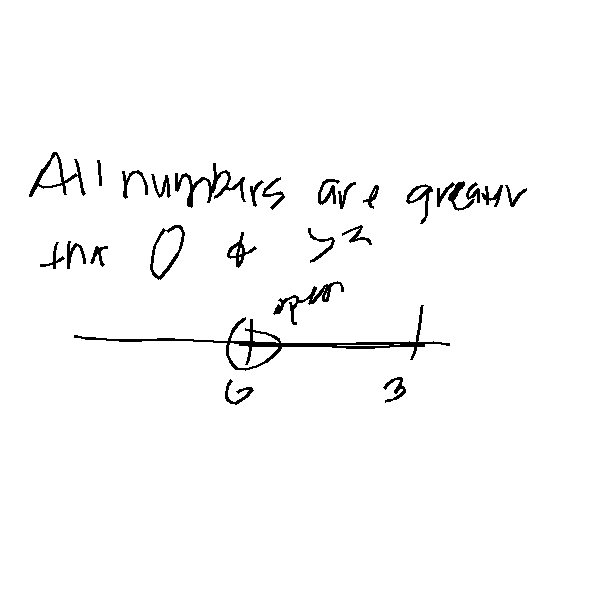 All numbers are greater
than 0 &
open
0 3